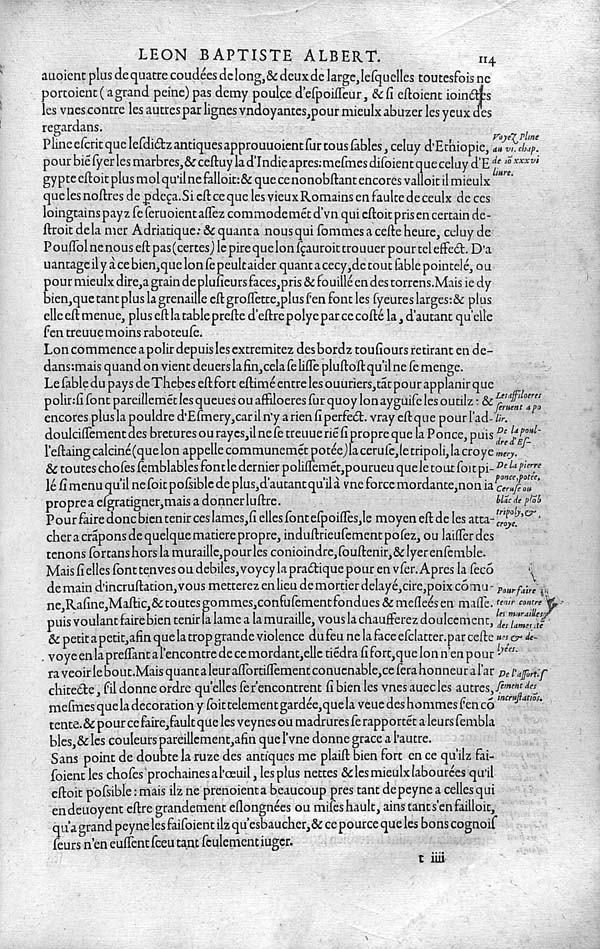 LEON BAPTISTE ALBERT. 114
auoient plus de quatre coudées de long, & deux de large, leſquelles toutesfois ne
portoient (a grand peine) pas demy poulce d'eſpoiſſeur, & ſi eſtoient ioinctes
les vnes contre les autres par lignes vndoyantes, pour mieulx abuzer les yeux des
regardans.
Pline eſcrit que leſdictz antiques approuuoient ſur tous ſables, celuy d'Ethiopie,
pour biē ſyer les marbres, & ceſtuy la d'Indie apres: meſmes diſoient que celuy d'E
gypte eſtoit plus mol qu'il ne falloit: & que ce nonobſtant encores valloit il mieulx
que les noſtres de ꝑdeça. Si eſt ce que les vieux Romains en faulte de ceulx de ces
loingtains payz ſe ſeruoient aſſez commodemēt d'vn qui eſtoit pris en certain de-
ſtroit de la mer Adriatique: & quant a nous qui ſommes a ceſte heure, celuy de
Pouſſol ne nous eſt pas (certes) le pire que lon ſçauroit trouuer pour tel effect. D'a
uantage il y à ce bien, que lon ſe peult aider quant a cecy, de tout ſable pointelé, ou
pour mieulx dire, a grain de pluſieurs faces, pris & fouillé en des torrens. Mais ie dy
bien, que tant plus la grenaille eſt groſſette, plus ſ'en font les ſyeures larges: & plus
elle eſt menue, plus eſt la table preſte d'eſtre polye par ce coſté la, d'autant qu'elle
ſ'en treuue moins raboteuſe.
Lon commence a polir depuis les extremitez des bordz touſiours retirant en de-
dans: mais quand on vient deuers la fin, cela ſe liſſe pluſtoſt qu'il ne ſe menge.
Le ſable du pays de Thebes eſt fort eſtimé entre les ouuriers, tāt pour applanir que
polir: ſi ſont pareillemēt les queues ou affiloeres ſur quoy lon ayguiſe les outilz: &
encores plus la pouldre d'Eſmery, car il n'y a rien ſi perfect. vray eſt que pour l'ad-
doulciſſement des bretures ou rayes, il ne ſe treuue riē ſi propre que la Ponce, puis
l'eſtaing calciné (que lon appelle communemēt potée) la ceruſe, le tripoli, la croye
& toutes choſes ſemblables font le dernier poliſſemēt, pourueu que le tout ſoit pi-
lé ſi menu qu'il ne ſoit poſſible de plus, d'autant qu'il à vne force mordante, non ia
propre a eſgratigner, mais a donner luſtre.
Pour faire donc bien tenir ces lames, ſi elles ſont eſpoiſſes, le moyen eſt de les atta-
cher a crāpons de quelque matiere propre, induſtrieuſement poſez, ou laiſſer des
tenons ſortans hors la muraille, pour les conioindre, ſouſtenir, & lyer enſemble.
Mais ſi elles ſont tenves ou debiles, voycy la practique pour en vſer. Apres la ſecō
de main d'incruſtation, vous metterez en lieu de mortier delayé, cire, poix cōmu-
ne, Raſine, Maſtic, & toutes gommes, confuſement fondues & meſleés en maſſe.
puis voulant faire bien tenir la lame a la muraille, vous la chaufferez doulcement,
& petit a petit, afin que la trop grande violence du feu ne la face eſclatter. par ceſte
voye en la preſſant a l'encontre de ce mordant, elle tiēdra ſi fort, que lon n'en pour
ra veoir le bout. Mais quant a leur aſſortiſſement conuenable, ce ſera honneur a l'ar
chitecte, ſ'il donne ordre qu'elles ſe r'encontrent ſi bien les vnes auec les autres,
meſmes que la decoration y ſoit telement gardée, que la veue des hommes ſ'en cō
tente. & pour ce faire, fault que les veynes ou madrures ſe rapportēt a leurs ſembla
bles, & les couleurs pareillement, afin que l'vne donne grace a l'autre.
Sans point de doubte la ruze des antiques me plaiſt bien fort en ce qu'ilz fai-
ſoient les choſes prochaines a l'œuil, les plus nettes & les mieulx labourées qu'il
eſtoit poſſible: mais ilz ne prenoient a beaucoup pres tant de peyne a celles qui
en deuoyent eſtre grandement eſlongnées ou miſes hault, ains tant s'en failloit,
qu'a grand peyne les faiſoient ilz qu'esbaucher, & ce pource que les bons cognoiſ
ſeurs n'en euſſent ſceu tant ſeulement iuger.
t iiii
Voyez Pline
au vi. chap.
de iō xxxvi
liure.
Les affiloeres
ſeruent a po
lir.
De la poul-
dre d'Eſ-
mery.
De la pierre
ponce, potée,
Ceruſe ou
blāc de plōb
tripoly, &
croye.
Pour faire
tenir contre
les murailles
des lames tē
ues & de-
byles.
De l'aſſortiſ
ſement des
incruſtatiōs.